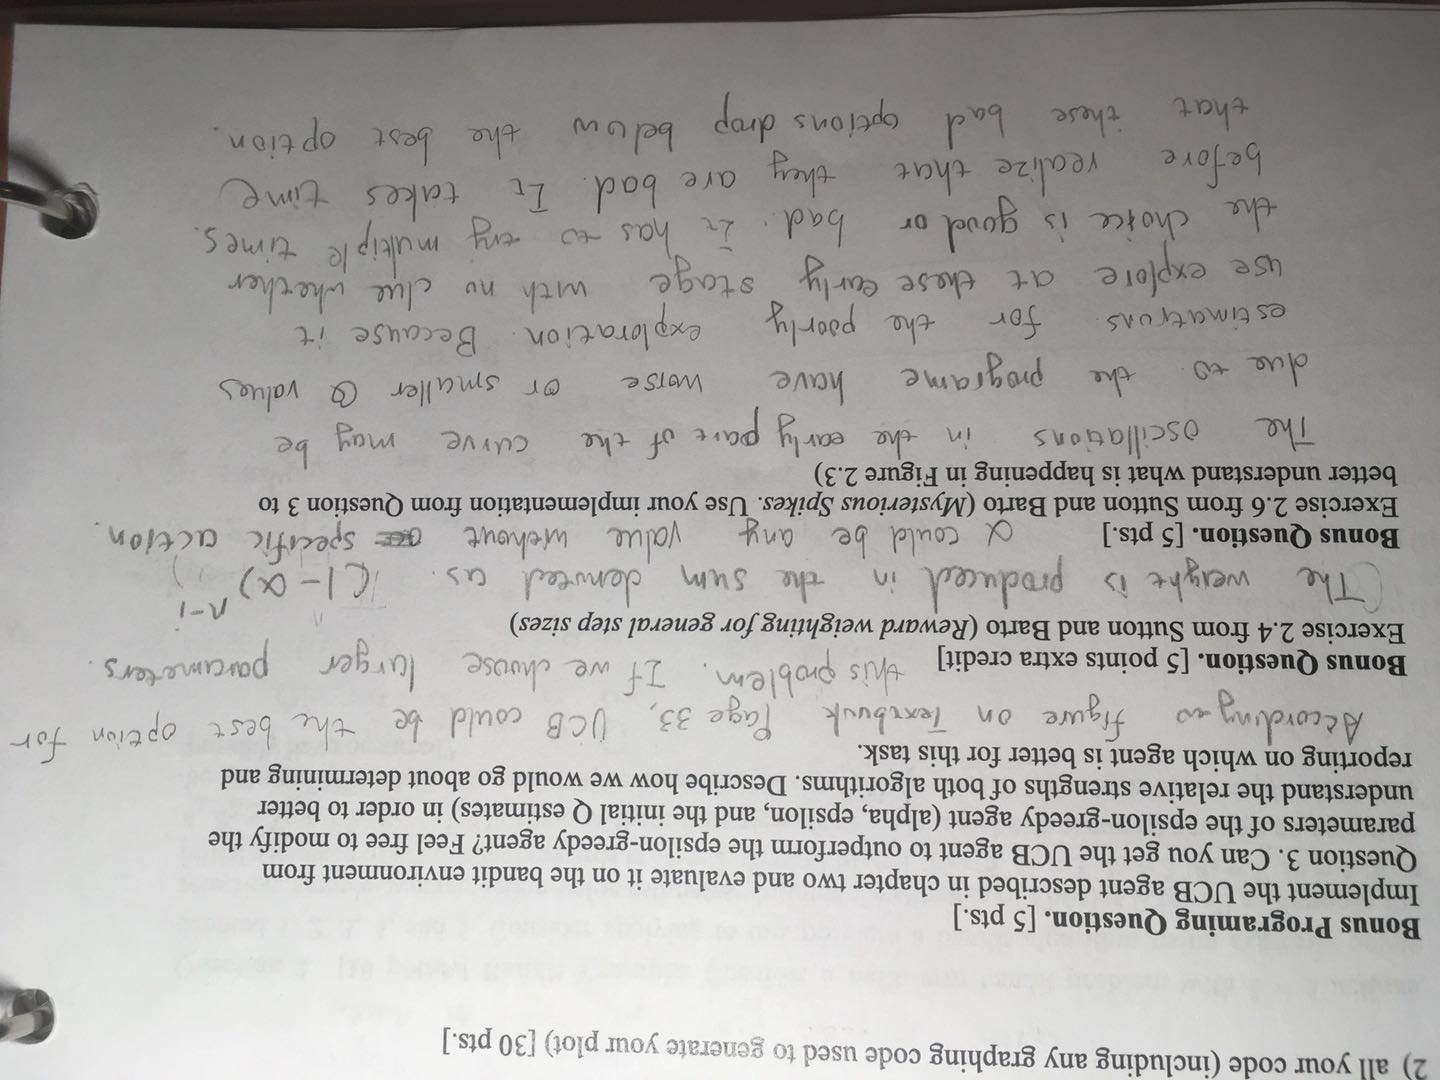 2) all your code (including any graphing code used to generate your plot) [30 pts.]
Bonus Programing Question. [5 pts.]
Implement the UCB agent described in chapter two and evaluate it on the bandit environment from
Question 3. Can you get the UCB agent to outperform the epsilon-greedy agent? Feel free to modify the
parameters of the epsilon-greedy agent (alpha, epsilon, and the initial Q estimates) in order to better
understand the relative strengths of both algorithms. Describe how we would go about determining and
reporting on which agent is better for this task.
According to figure on Textbook Page 33, UCB could be the best option for
this problem. If we choose larger parameters.
Bonus Question. [5 points extra credit]
Exercise 2.4 from Sutton and Barto (Reward weighting for general step sizes)
(The weight is produced in the sum denoted as (1-α)^n-i)
α could be any value without specific action.
Bonus Question. [5 pts.]
Exercise 2.6 from Sutton and Barto (Mysterious Spikes. Use your implementation from Question 3 to
better understand what is happening in Figure 2.3)
The oscillations in the early part of the curve may be
due to the programe have worse or smaller Q values
estimations for the poorly exploration. Because it
use explore at these early stage with no clue whether
the choice is good or bad. It has to try multiple times.
before realize that they are bad. It takes time
that these bad options drop below the best option.